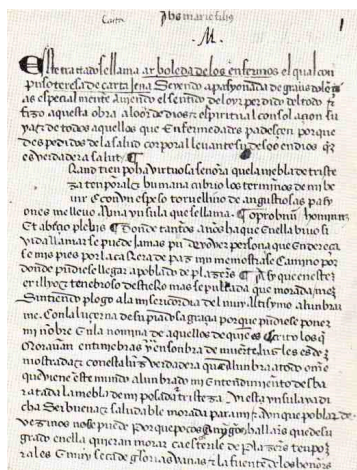 Carta
Jhus marie filius
1
.M.
Este tratado se llama arboleda de los enfermos el qual con
puso teresa de cartajena seyendo apasyonada de graues dolençi
as especial mente auiendo el sentido del oyr perdido del todo E
fizo aquesta obra a loor de dios E espiritual consolaçion su
ya E de todos aquellos que enfermedades padesçen porque
despedidos de la salud corporal leuanten su deseo en dios que
es verdadera salut
Grand tienpo ha virtuosa señora que la niebla de triste
za tenporal E humana cubrio los terminos de mi be
uir E con vn espeso toruellino de angustiosas pasy
ones me lleuo a vna ynsula que se llama oprobrium hominum
Et abiecio plebis donde tantos años ha que en ella biuo si
vida llamar se puede jamas pude yo ver persona que endereça
se mis pies por la carrera de paz nin me mostrase camino por
donde pudiese llegar a poblado de plazeres Asy que en este
exillyo E tenebroso destierro mas sepultada que morada me
sintiendo plogo a la misericordia del muy altysymo alunbrar
me con la luçerna de su piadosa graçia porque pudiese poner
mi nonbre en la nomina de aquellos de quien es escrito los que
morauan en tiniebras y en sonbra de muerte luz les es de
mostrada E con esta luz verdadera que alunbra a todo omne
que viene en este mundo alunbrado mi entendimiento desba
ratada la niebla de mi pesada tristeza vi esta ynsula ya di
cha ser buena E saludable morada para mi E avn que poblar de
vezinos no se puede porque pocos hallarés que de su
grado en ella quieran morar ca es esterile de plazeres tenpo
rales E muy seca de glorias vanas E la fuente de los honores